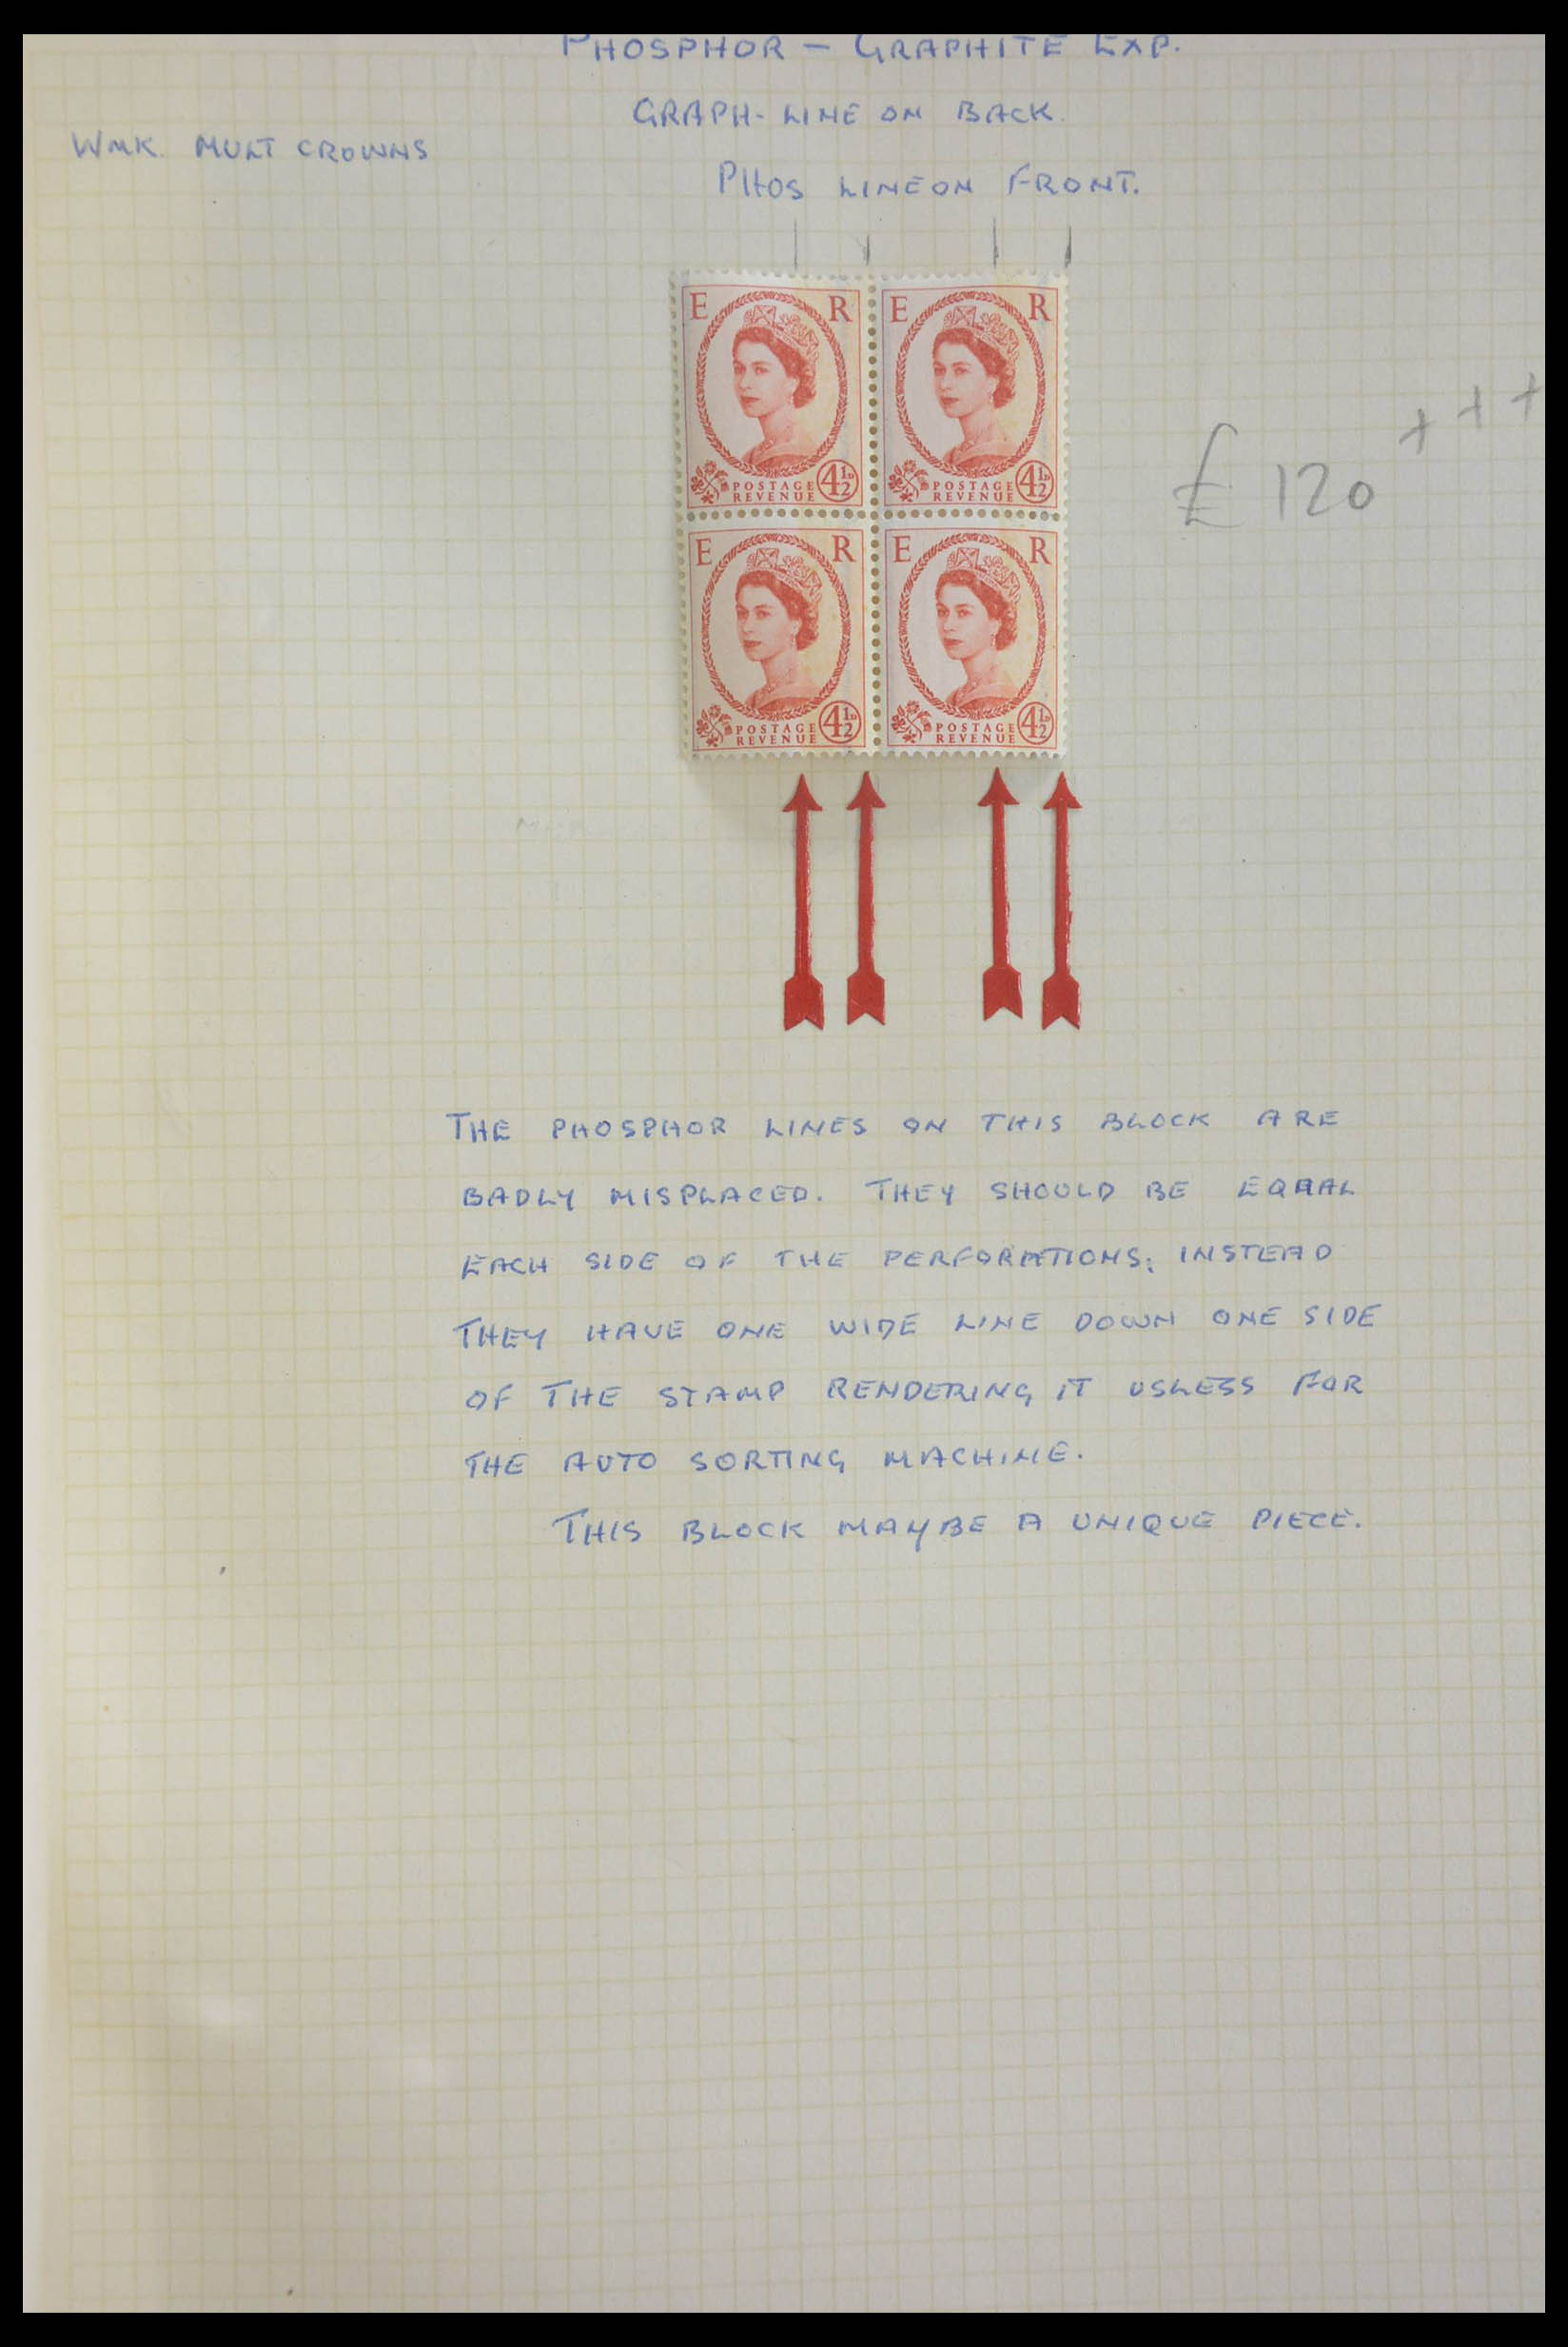 PHOSPHOR — GRAPHITE EXP.
GRAPH- LINE ON BACK.
WMK. MULT CROWNS
PHOS LINE ON FRONT.
E R E R
POSTAGE REVENUE 4½D POSTAGE REVENUE 4½D
£120 +++
E R E R
POSTAGE REVENUE 4½D POSTAGE REVENUE 4½D
THE PHOSPHOR LINES ON THIS BLOCK ARE
BADLY MISPLACED. THEY SHOULD BE EQUAL
EACH SIDE OF THE PERFORATIONS; INSTEAD
THEY HAVE ONE WIDE LINE DOWN ONE SIDE
OF THE STAMP RENDERING IT USLESS FOR
THE AUTO SORTING MACHINE.
THIS BLOCK MAYBE A UNIQUE PIECE.